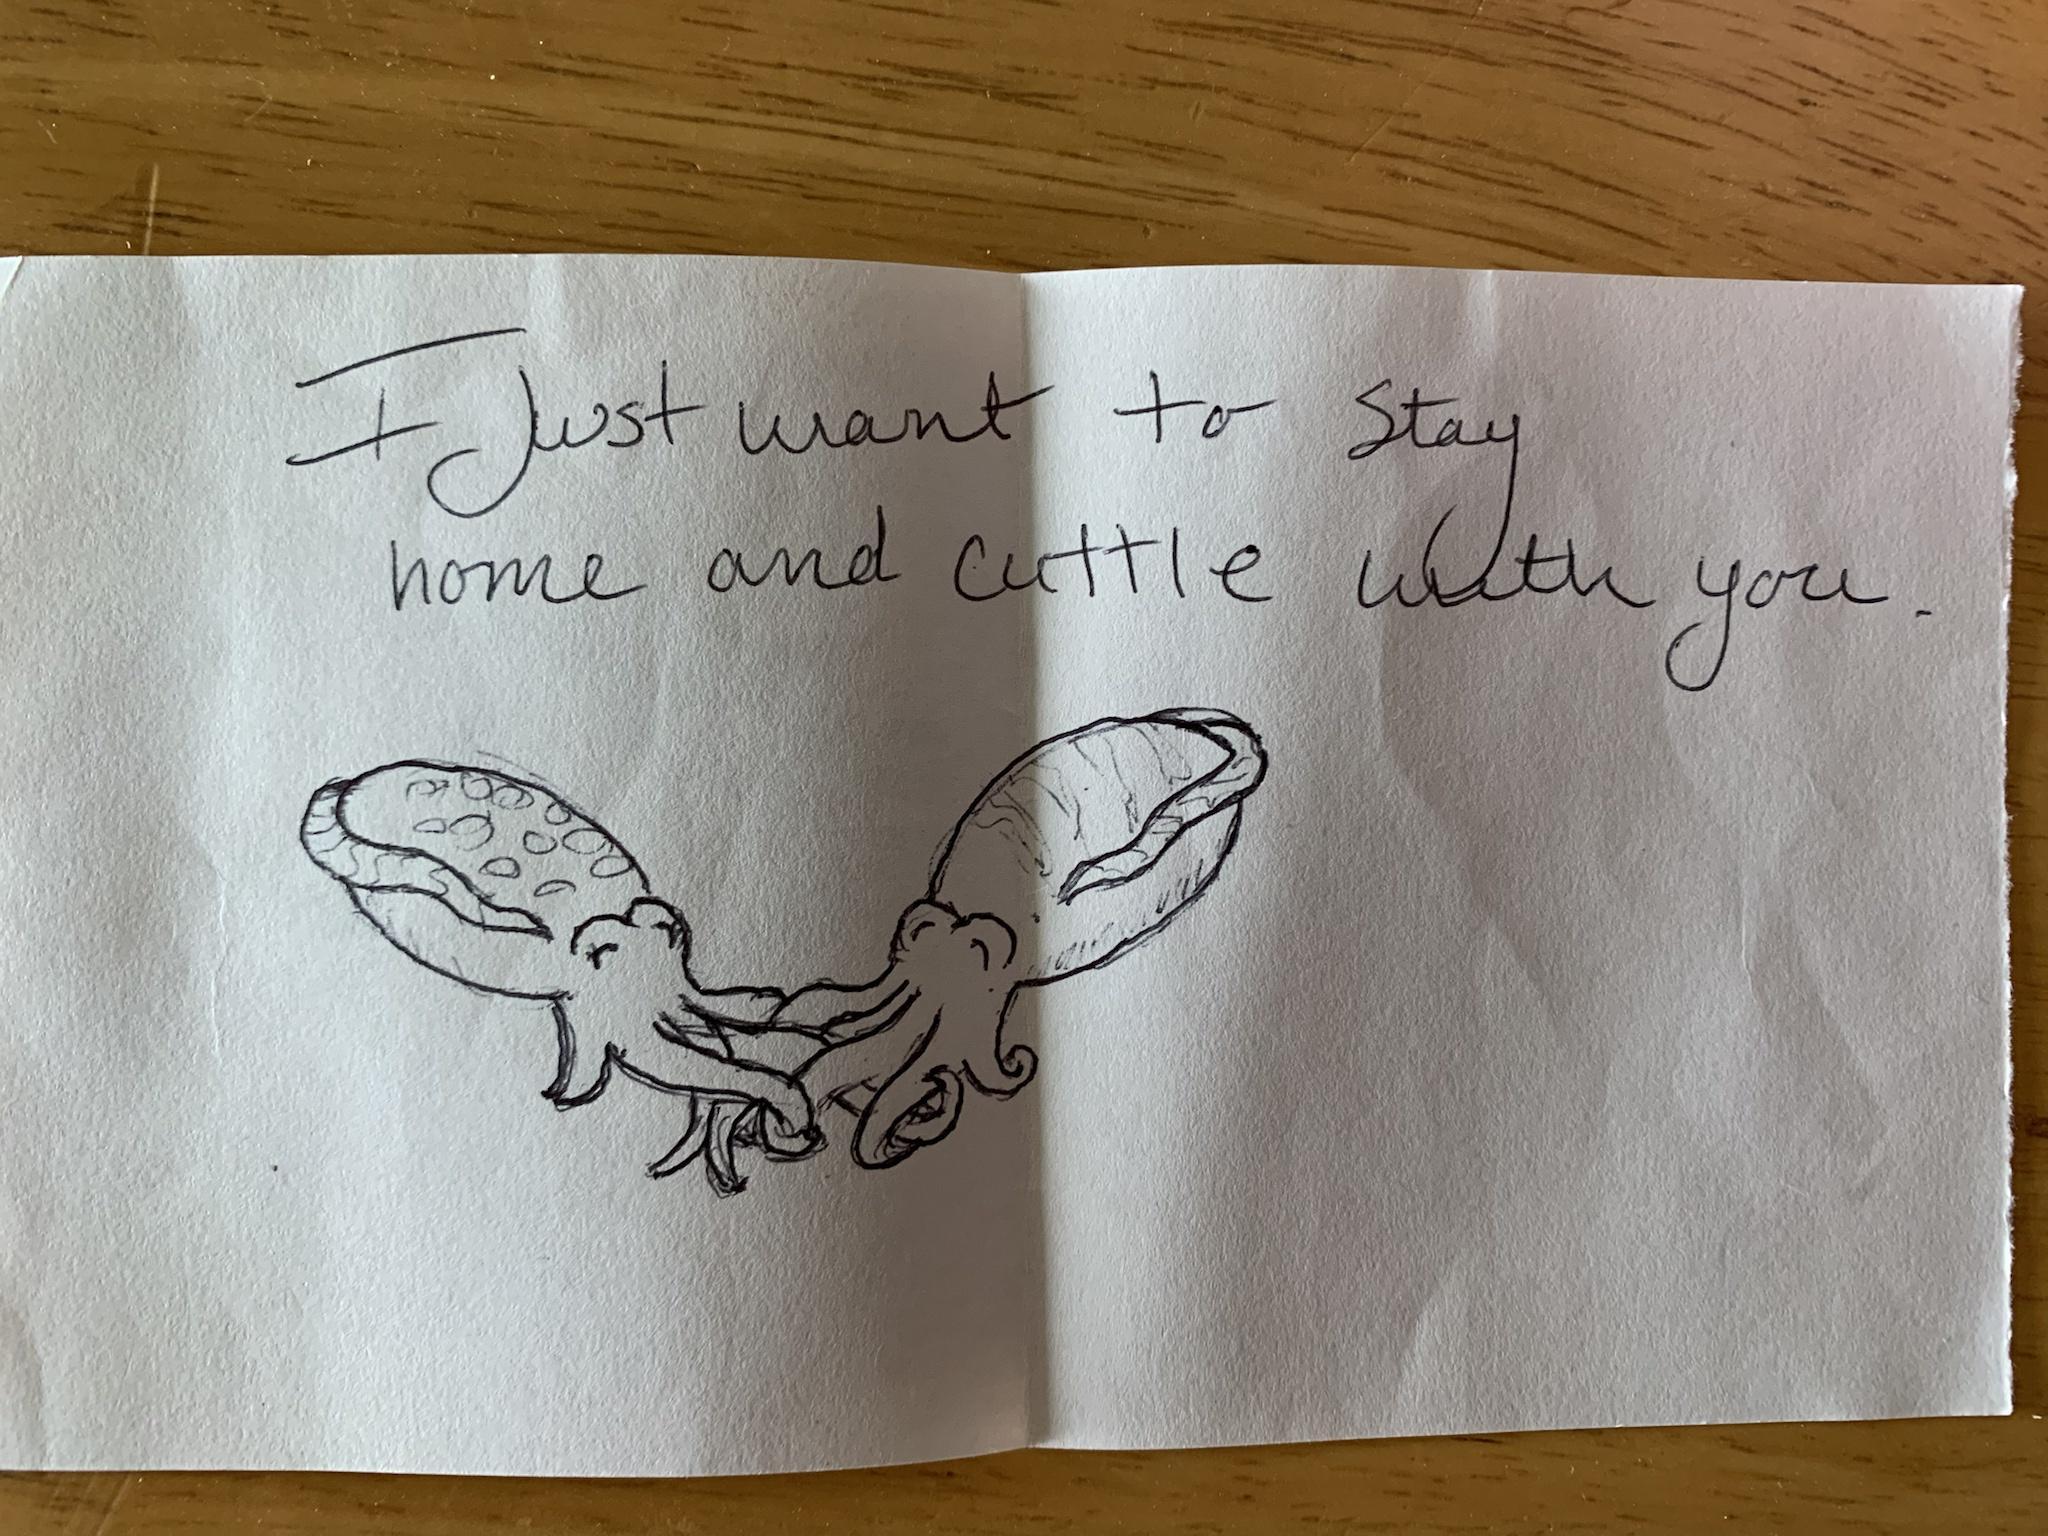 I Just want to stay
home and cuttle with you.